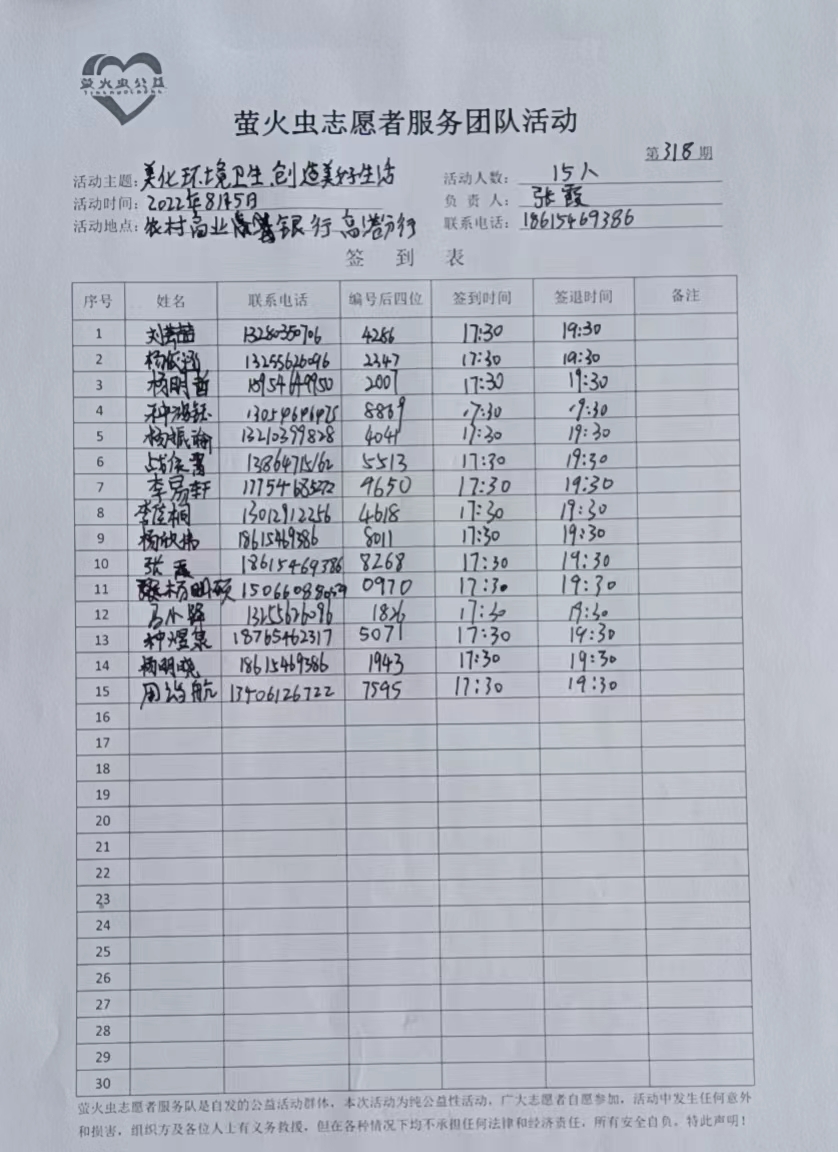 萤火虫公益
萤火虫志愿者服务团队活动
第318期
活动主题:美化环境卫生,创造美好生活 活动人数: 15人
活动时间:2022年8月5日 负 责 人: 张霞
活动地点:农村商业银行高港分行 联系电话:18615469386
签 到 表
序号 姓名 联系电话 编号后四位 签到时间 签退时间 备注
1 13280350706 4286 17:30 19:30
2 13255626096 2347 17:30 19:30
3 杨明哲 15954649950 2007 17:30 19:30
4 8869 17:30 19:30
5 杨振瑜 13210399828 4041 17:30 19:30
6 13864715162 5513 17:30 19:30
7 李易轩 17754685272 9650 17:30 19:30
8 李佳桐 13012912256 4618 17:30 19:30
9 杨欣梅 18615469386 8011 17:30 19:30
10 张霞 18615469386 8268 17:30 19:30
11 杨明硕 0970 17:30 19:30
12 13255626096 1826 17:30 19:30
13 种煜集 18765462317 5071 17:30 19:30
14 杨明晓 18615469386 1943 17:30 19:30
15 周治航 13406126722 7595 17:30 19:30
16
17
18
19
20
21
22
23
24
25
26
27
28
29
30
萤火虫志愿者服务队是自发的公益活动群体,本次活动为纯公益性活动,广大志愿者自愿参加,活动中发生任何意外
和损害,组织方及各位人士有义务救援,但在各种情况下均不承担任何法律和经济责任,所有安全自负。特此声明!